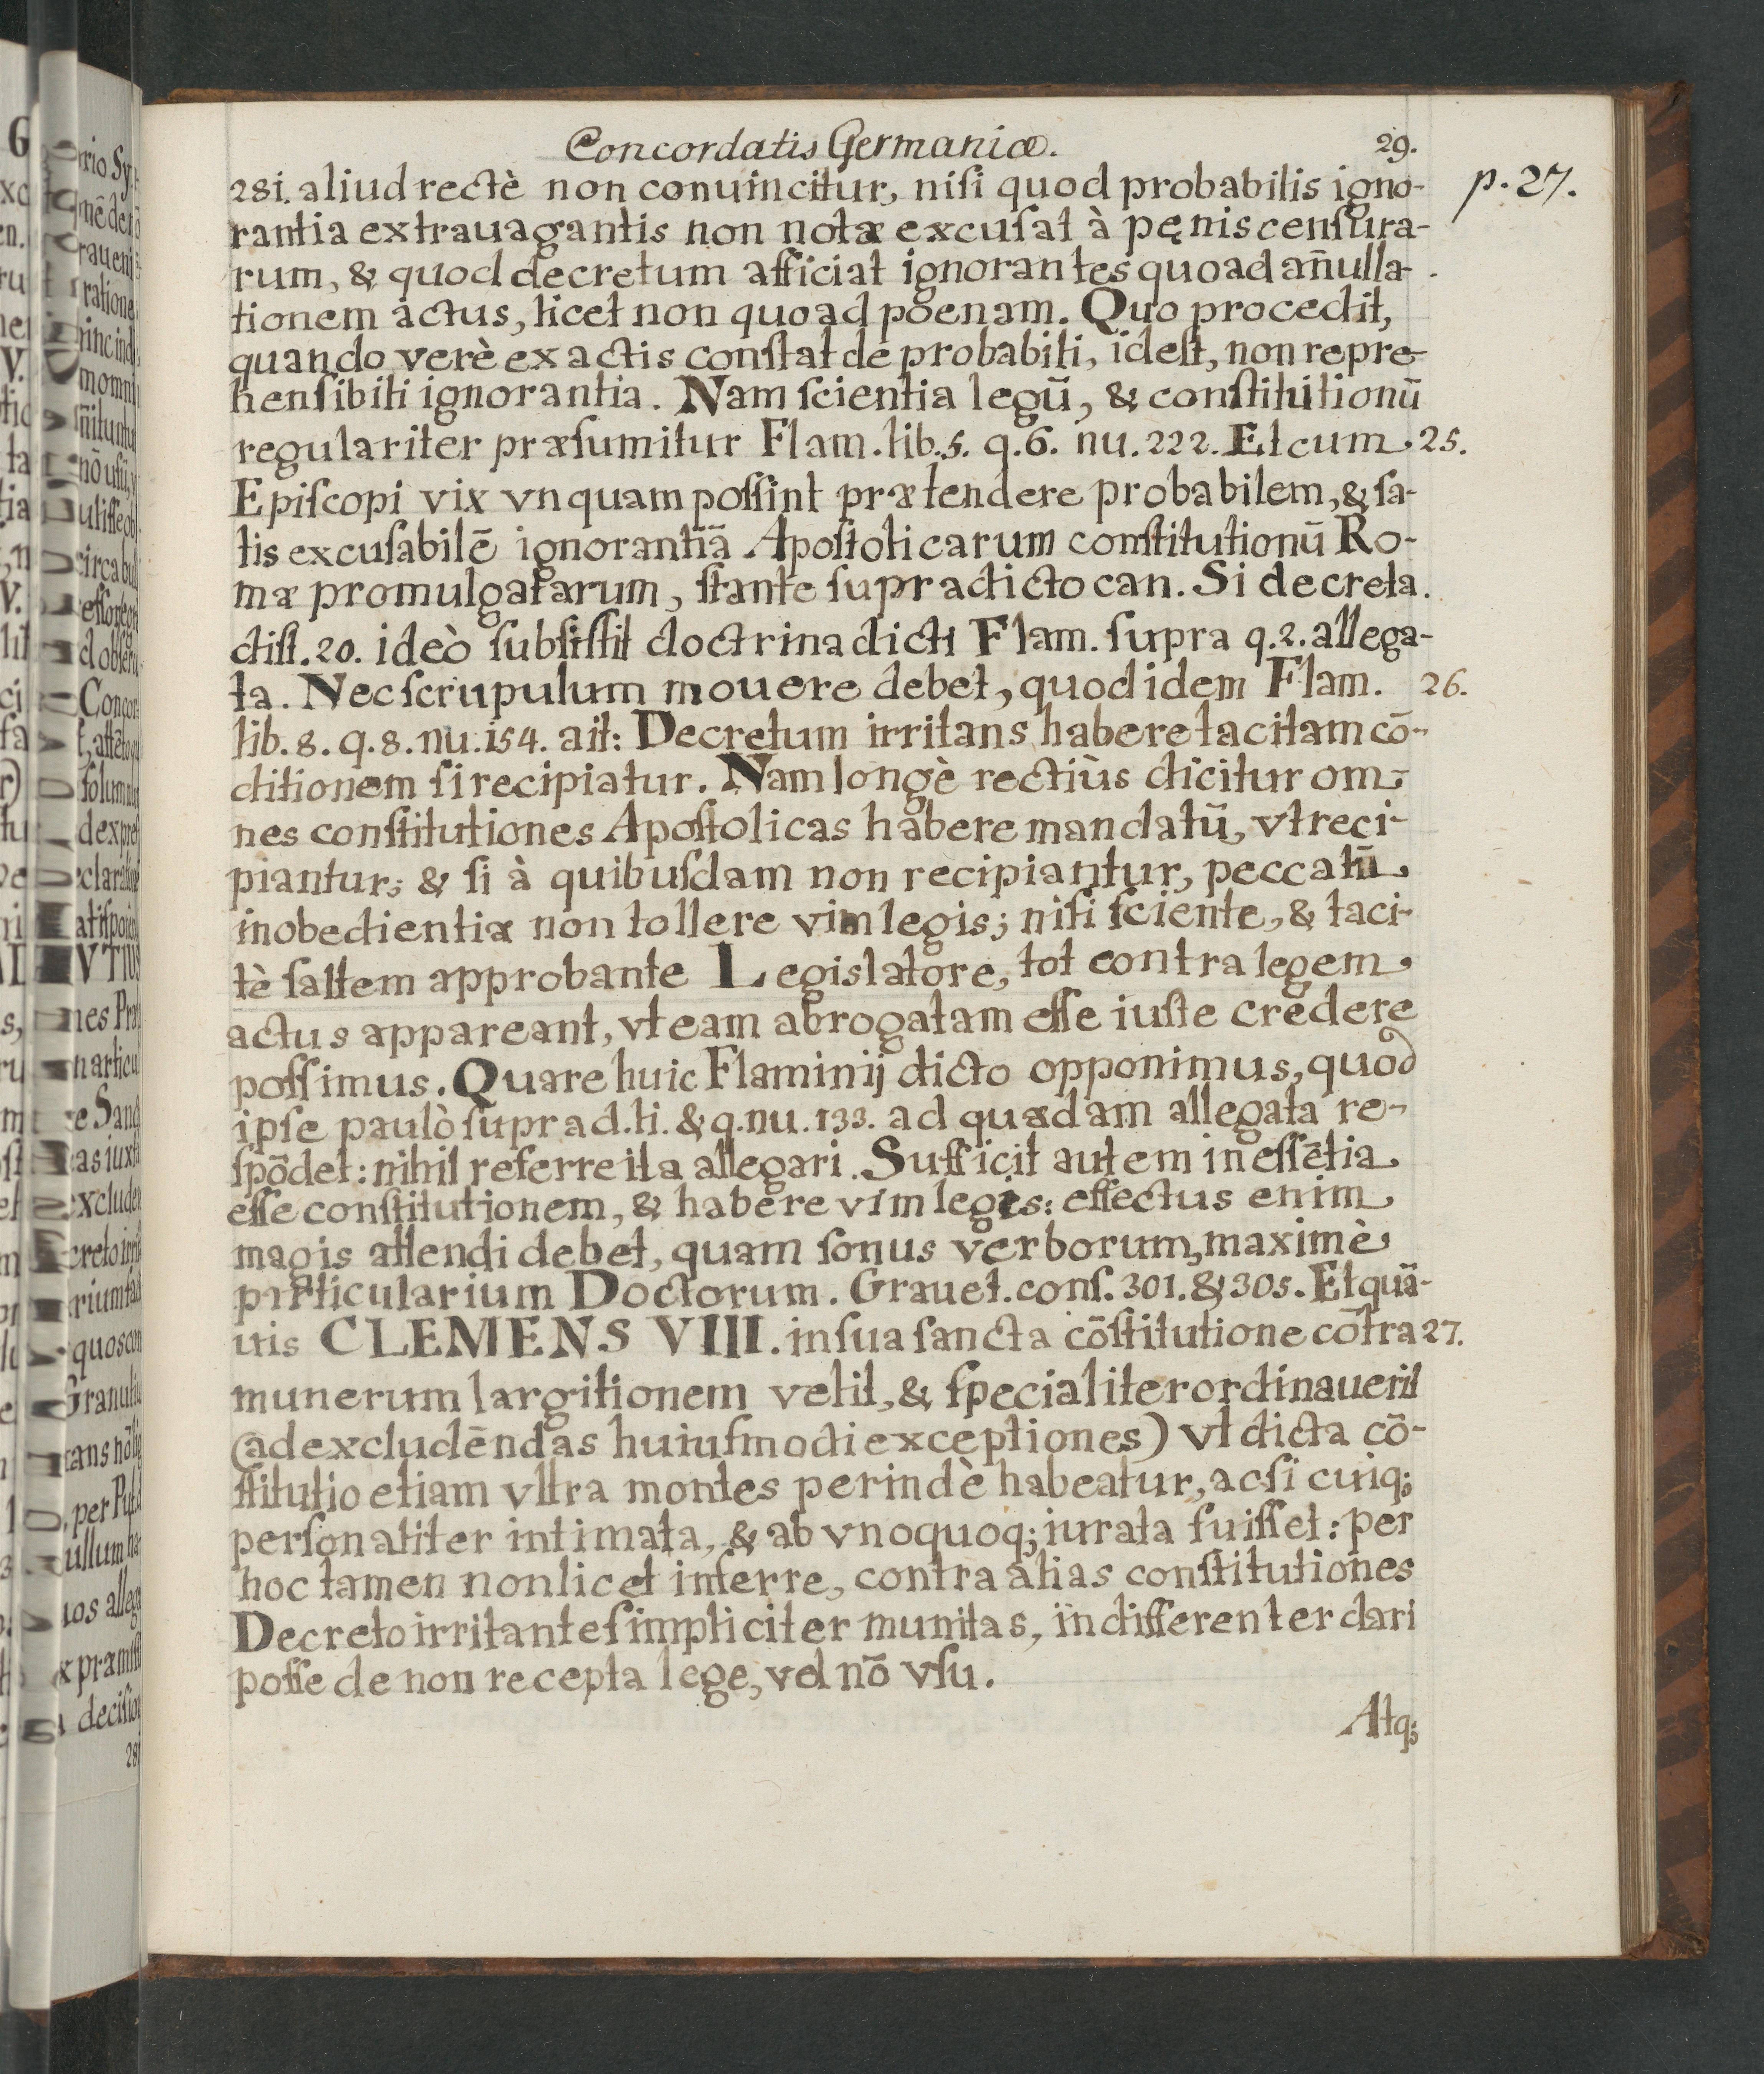 Concordatis Germaniæ. 29.
281. aliud rectè non conuincitur, niſi quod probabilis igno- p. 27.
rantia extrauagantis non notæ excuſat à pęnis cenſura-
rum, & quod decretum afficiat ignorantes quoad an̄ulla-
tionem actus, licet non quoad poenam. Quo procedit,
quando verè ex actis conſtat de probabili, ideſt, non repre-
henſibili ignorantia. Nam ſcientia legū, & conſtitutionū
regulariter præſumitur Flam. lib. 5. q. 6. nu. 222. Et cum 25.
Epiſcopi vix vnquam poſſint prætendere probabilem, & ſa-
tis excuſabilē ignorantiā Apoſtolicarum conſtitutionū Ro-
mæ promulgatarum, ſtante ſupradicto can. Si decreta.
diſt. 20. ideò ſubſiſtit doctrina dicti Flam. ſupra q. 2. allega-
ta. Nec ſcrupulum mouere debet, quod idem Flam. 26.
lib. 8. q. 8. nu. 154. ait: Decretum irritans habere tacitam cō-
ditionem ſi recipiatur. Nam longè rectiùs dicitur om-
nes conſtitutiones Apoſtolicas habere mandatū, vt reci-
piantur; & ſi à quibuſdam non recipiantur, peccatū
inobedientiæ non tollere vim legis; niſi ſciente, & taci-
tè ſaltem approbante Legislatore, tot contra legem
actus appareant, vt eam abrogatam eſſe iuſte credere
poſſimus. Quare huic Flaminij dicto opponimus, quod
ipſe paulò ſupra d. li. & q. nu. 133. ad quædam allegata re-
ſpōdet: nihil referre ita allegari. Sufficit autem in eſſētia
eſſe conſtitutionem, & habere vim legis: effectus enim
magis attendi debet, quam ſonus verborum, maximè
particularium Doctorum. Grauet. conſ. 301. & 305. Et quā-
uis CLEMENS VIII. in ſua ſancta cōſtitutione cōtra 27.
munerum largitionem velit, & ſpecialiter ordinauerit
(ad excludēndas huiuſmodi exceptiones) vt dicta cō-
ſtitutio etiam vltra montes perindè habeatur, ac ſi cuiq;
perſonaliter intimata, & ab vnoquoq; iurata fuiſſet: per
hoc tamen non licet inferre, contra alias conſtitutiones
Decreto irritante ſimpliciter munitas, indifferenter dari
poſſe de non recepta lege, vel nō vſu.
Atq;